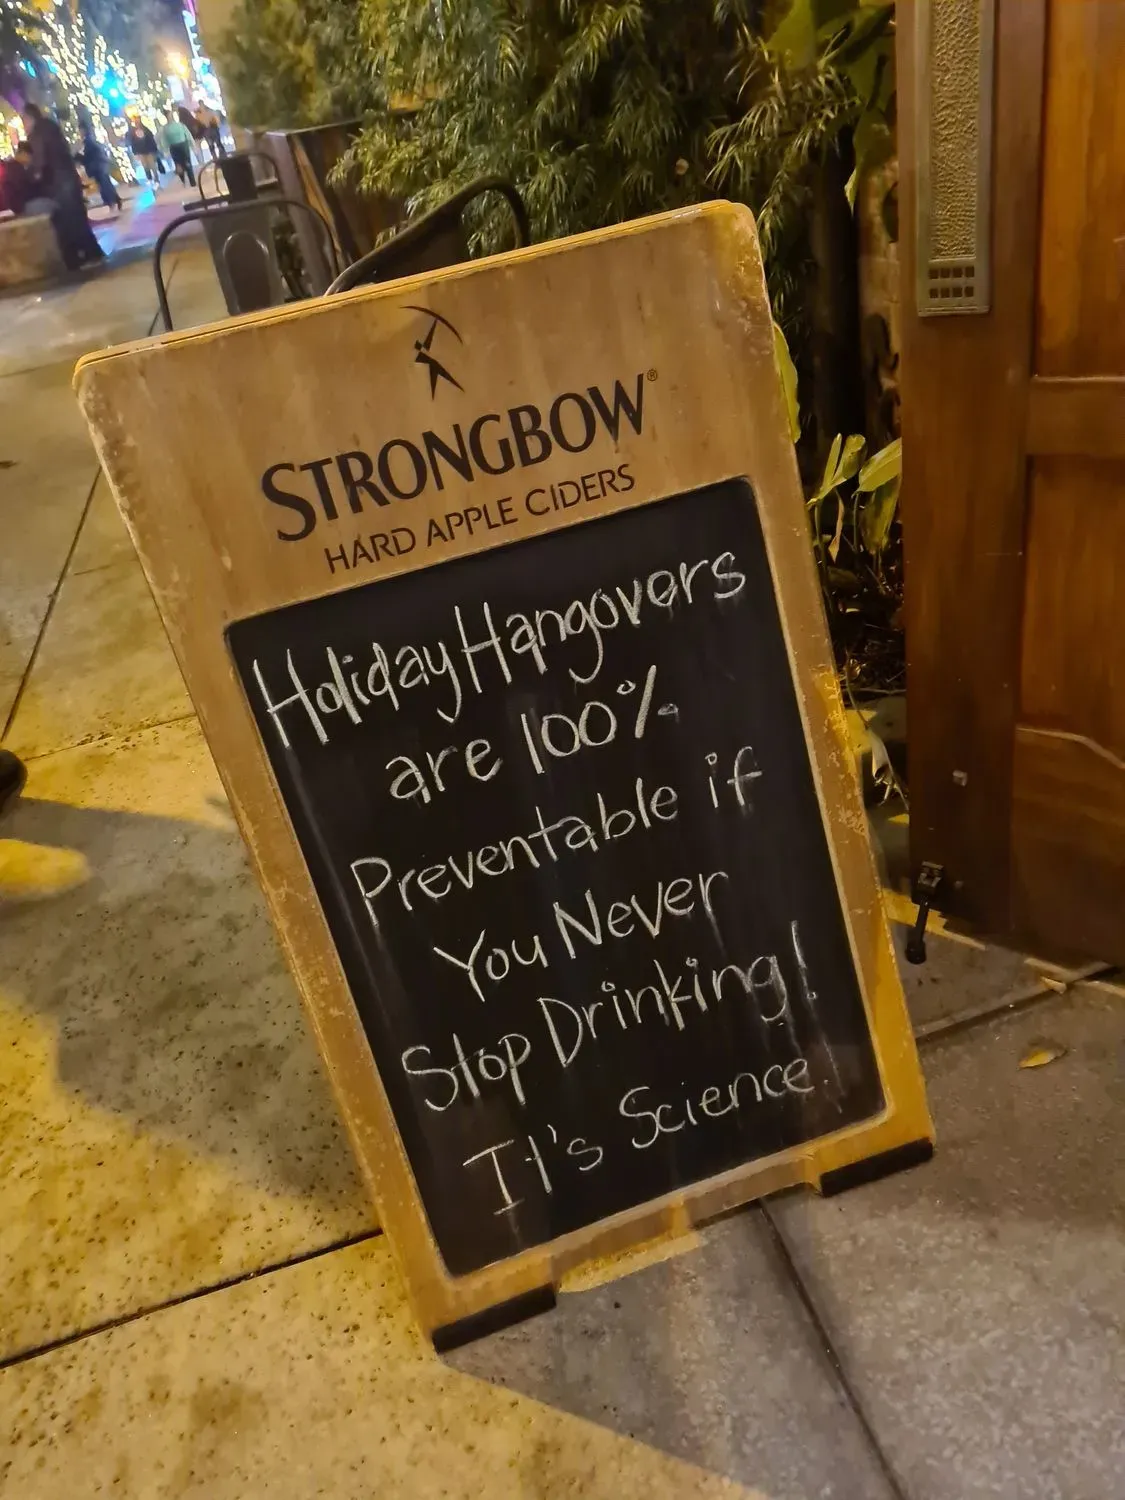 STRONGBOW®
HARD APPLE CIDERS
Holiday Hangovers
are 100%
Preventable if
You Never
Stop Drinking!
It's Science!